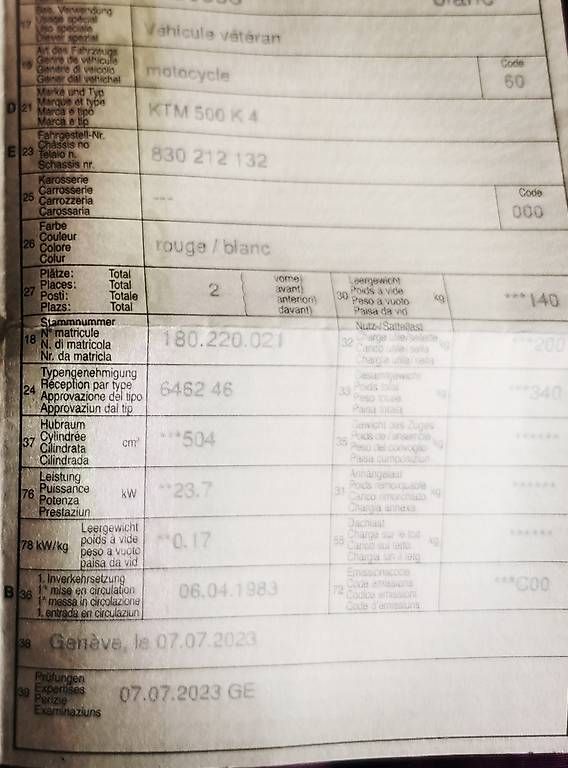 17 Bes. Verwendung
Usage spécial
Uso speciale
Diever spezial
Véhicule vétéran
19 Art des Fahrzeugs
Genre de véhicule
Genere di veicolo
Gener dal vehichel
motocycle
Code
60
D 21 Marke und Typ
Marque et type
Marca e tipo
Marca e tip
KTM 500 K 4
E 23 Fahrgestell-Nr.
Châssis no
Telaio n.
Schassis nr.
830 212 132
25 Karosserie
Carrosserie
Carrozzeria
Carossaria
---
Code
000
26 Farbe
Couleur
Colore
Colur
rouge / blanc
27 Plätze: Total
Places: Total
Posti: Totale
Plazs: Total
2
vorne)
avant)
anteriori)
davant)
30 Leergewicht
Poids à vide
Peso a vuoto
Paisa da vid
kg
***140
18 Stammnummer
N° matricule
N. di matricola
Nr. da matricla
180.220.021
32 Nutz-/Sattellast
Charge utile/sellette
Carico utile/sella
Chargia utile/sella
kg
***200
24 Typengenehmigung
Réception par type
Approvazione del tipo
Approvaziun dal tip
6462 46
33 Gesamtgewicht
Poids total
Peso totale
Paisa totala
kg
***340
37 Hubraum
Cylindrée
Cilindrata
Cilindrada
cm³
***504
35 Gewicht des Zuges
Poids de l'ensemble
Peso del convoglio
Paisa cumposiziun
kg
******
76 Leistung
Puissance
Potenza
Prestaziun
kW
**23.7
31 Anhängelast
Poids remorquable
Carico rimorchiato
Chargia annexa
kg
******
78 kW/kg Leergewicht
poids à vide
peso a vuoto
paisa da vid
**0.17
55 Dachlast
Charge sur le toit
Carico sul tetto
Chargia sin il tetg
kg
******
B 36 1. Inverkehrsetzung
1re mise en circulation
1a messa in circolazione
1. entrada en circulaziun
06.04.1983
72 Emissionscode
Code émissions
Codice emissioni
Code d'emissiuns
***C00
38 Genève, le 07.07.2023
39 Prüfungen
Expertises
Perizie
Examinaziuns
07.07.2023 GE